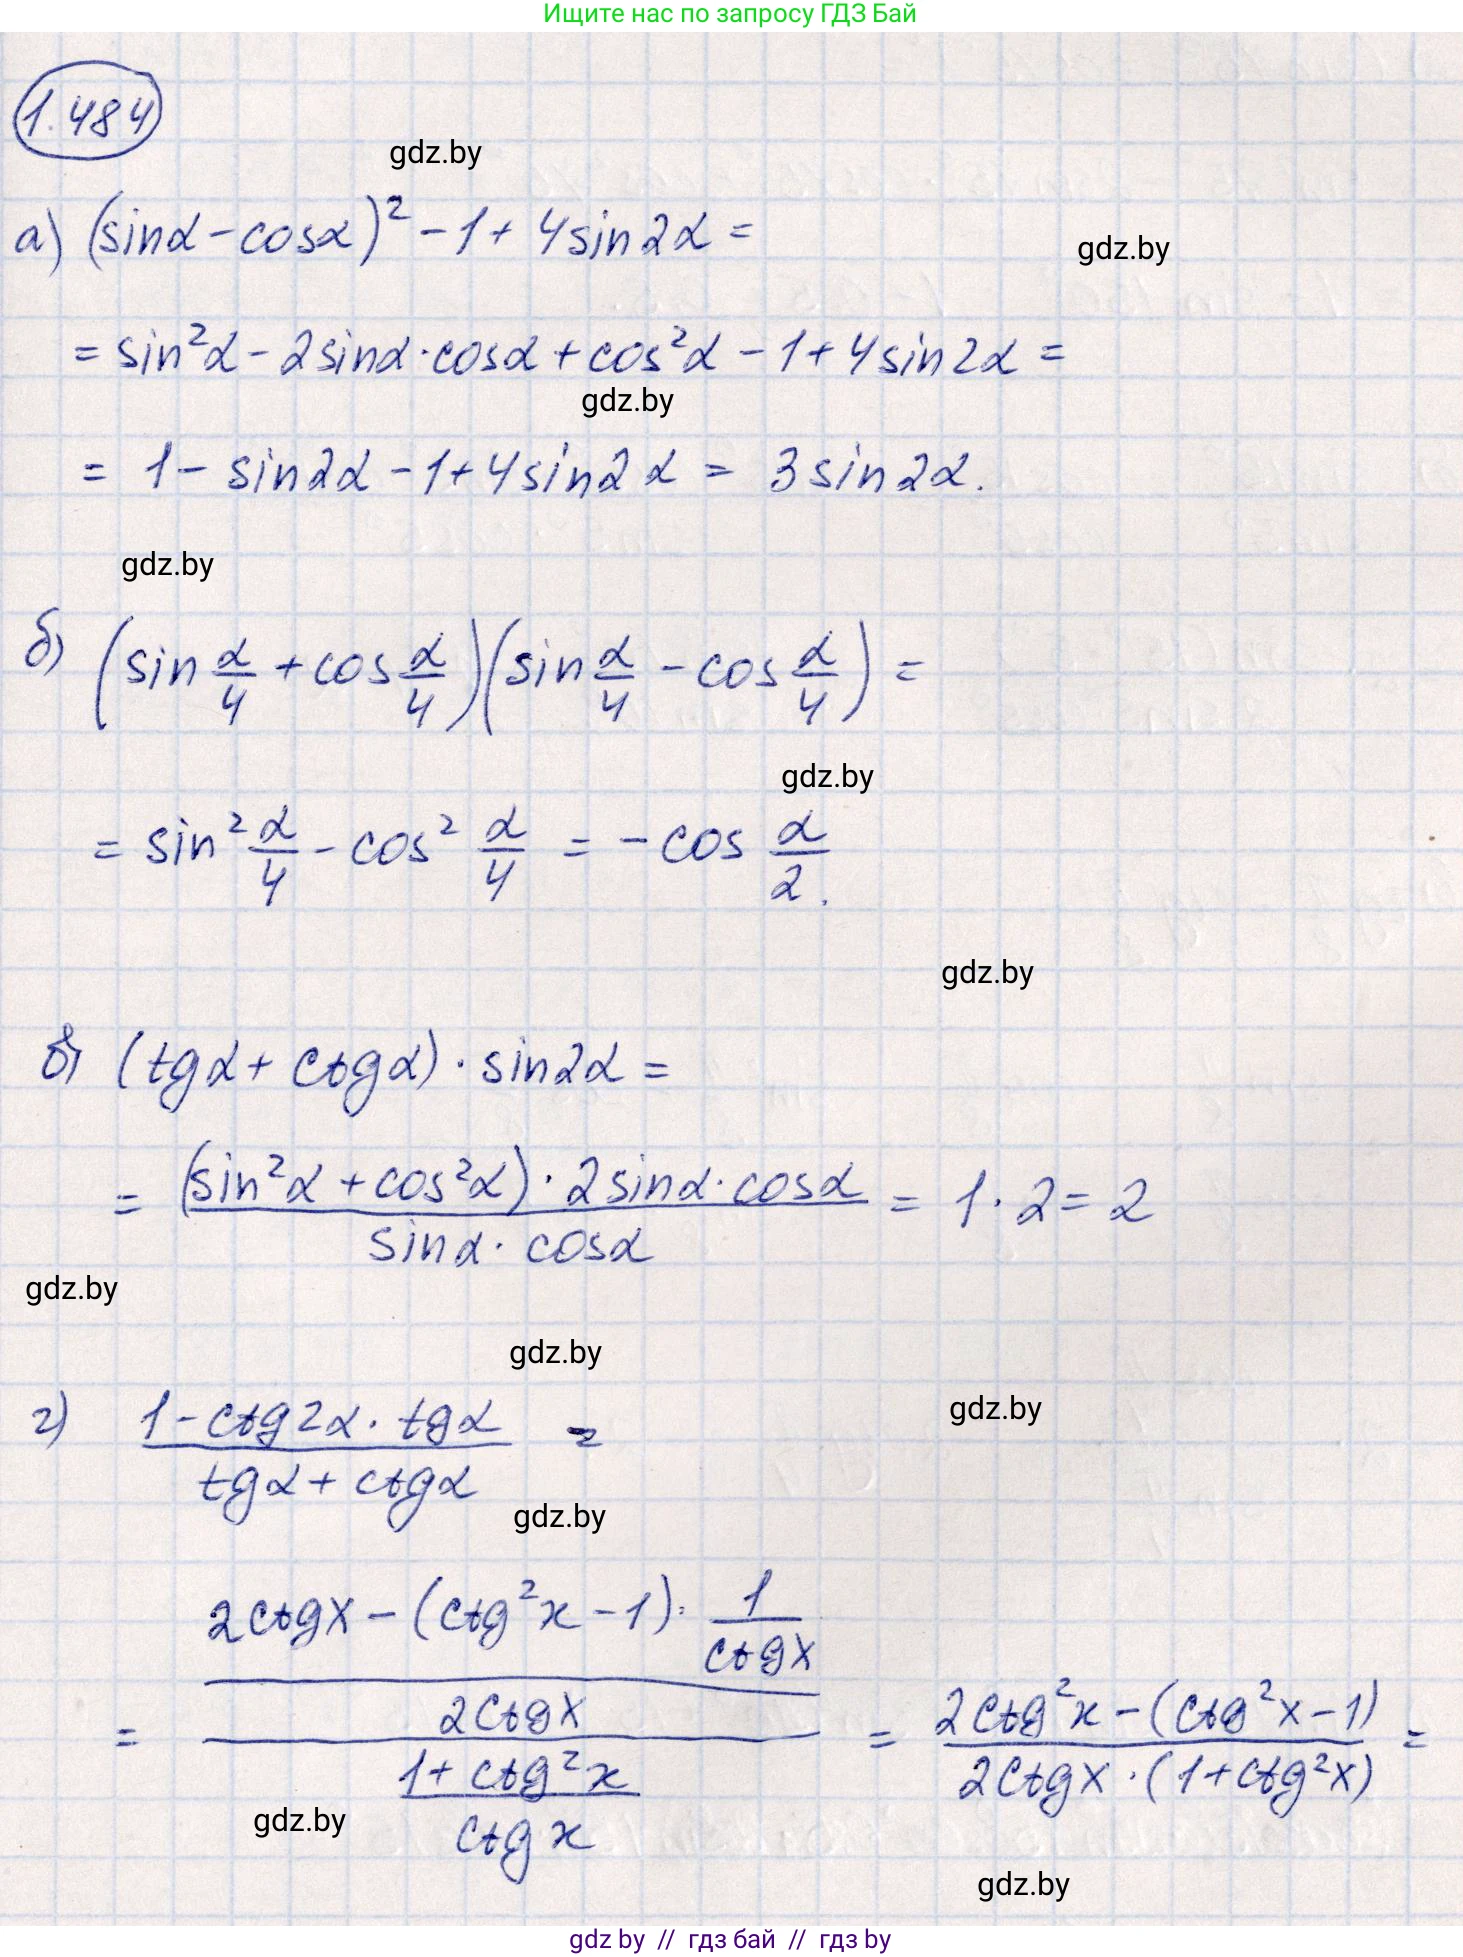 Ищите нас по запросу ГДЗ Бай
1.484
gdz.by
а) (sinα - cosα)² - 1 + 4sin2α =
gdz.by
= sin²α - 2sinα·cosα + cos²α - 1 + 4sin2α =
gdz.by
= 1 - sin2α - 1 + 4sin2α = 3sin2α.
gdz.by
б) (sin α/4 + cos α/4)(sin α/4 - cos α/4) =
gdz.by
= sin² α/4 - cos² α/4 = -cos α/2.
gdz.by
в) (tgα + ctgα)·sin2α =
= (sin²α + cos²α)·2sinα·cosα / sinα·cosα = 1·2 = 2
gdz.by
gdz.by
г) 1 - ctg2α·tgα / tgα + ctgα =
gdz.by
gdz.by
= 2ctgx - (ctg²x - 1)· 1/ctgx / 2ctgx / 1 + ctg²x / ctgx = 2ctg²x - (ctg²x - 1) / 2ctgx·(1 + ctg²x) =
gdz.by
gdz.by
gdz by // гдз бай // гдз by